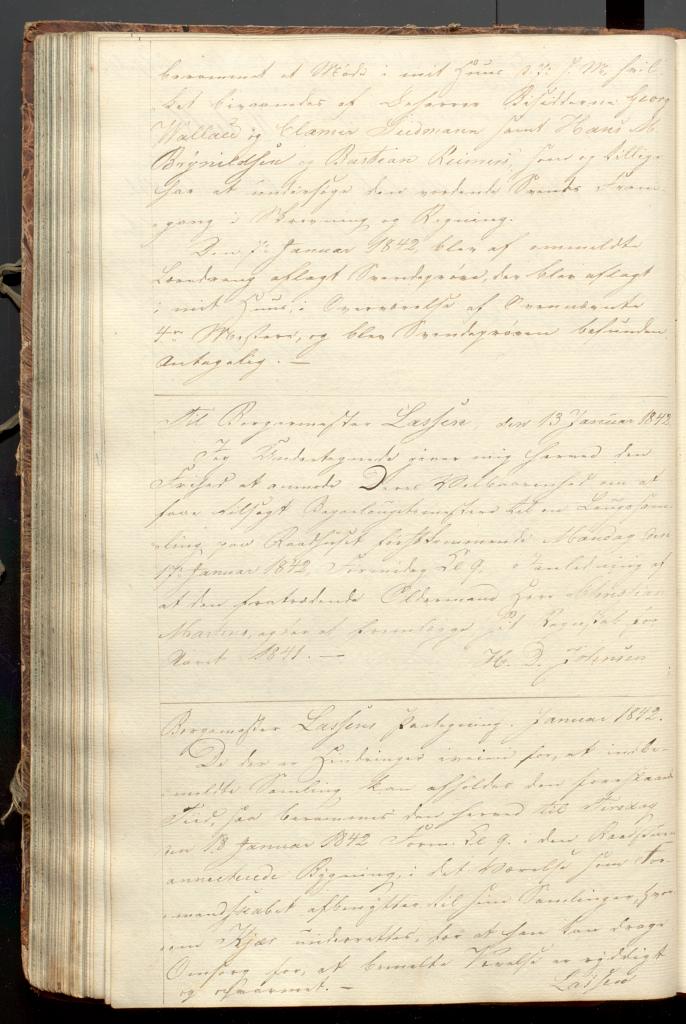 berammet et Møde i mit Huus d. 7: f. M. hvil-
ket bivaanedes af Herrer Bisidderne Georg
Wallace og Clamer Siedmann samt Hans M.
Brynildsen og Bastian Reimers, som og tillige
har at undersøge den vordende Svends Frem-
gang i Skrivning og Regning.
Den 7: Januar 1842 blev af ommeldte
Læredreng aflagt Svendeprøve, der blev aflagt
i mit Huus, i Overværelse af Ovennævnte
4re Mestere, og blev Svendeprøven befunden
Antagelig. —
Til Borgermester Lassen, den 13 Januar 1842
Jeg Undertegnede giver mig herved den
Frihed at anmode Deres Velbaarenhed om at
faae tilsagt Bagerlaugets Mestere til en Laugssam-
ling paa Raadhuset førstkommende Mandag den
17: Januar 1842, Formidag Kl 9. i Anledning af
at den fratrædende Oldermand Herr Christian
Martens, agter at fremlægge sit Regnskab for
Aaret 1841. —  H. D. Johnsen
Borgemester Lassens Paategning. Januar 1842.
Da der er Hindringer iveien for, at indbe-
meldte Samling kan afholdes den foreslaaede
Tiid, saa berammes den herved til Tirsdag
den 18 Januar 1842 Form: Kl 9. i den Raadstuen
annecterede Bygning, i det Værelse som For-
mandskabet afbenytter til sine Samlinger, hvor-
om Kjær underrettes, for at han kan drage
Omsorg for, at bemeldte Værelse er ryddigt
og opvarmet. —  Lassen